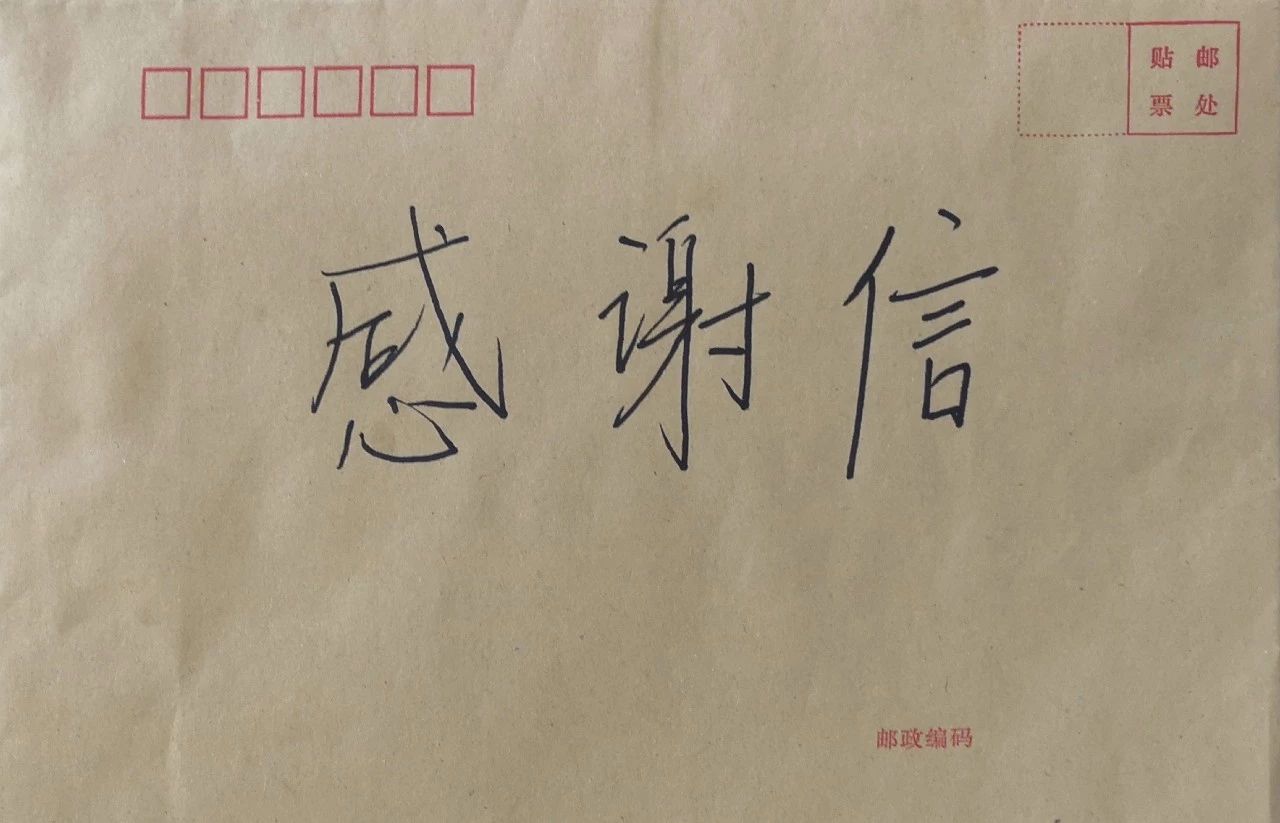 贴邮
票处
感谢信
邮政编码